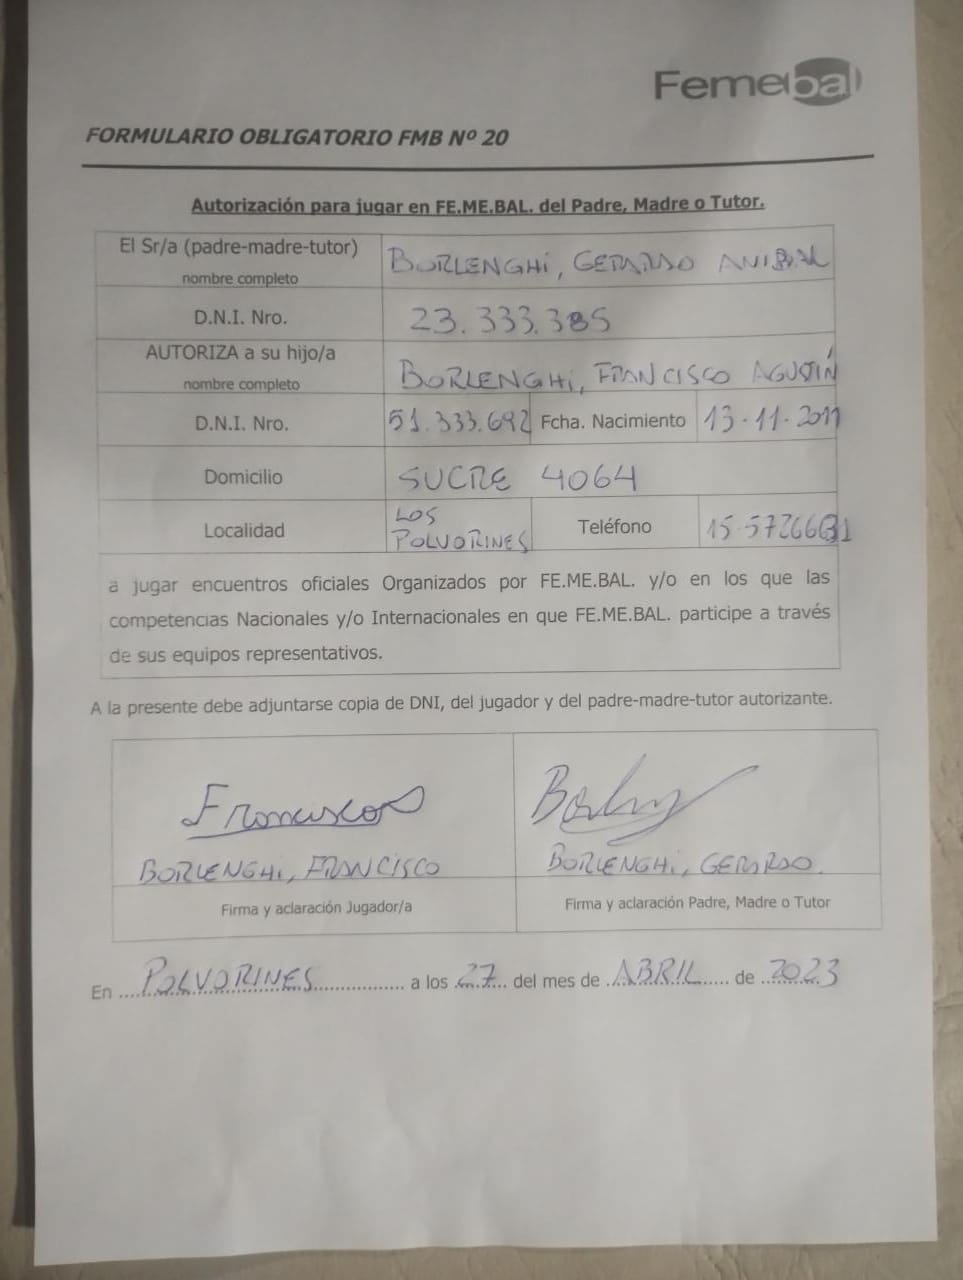 Femebal
FORMULARIO OBLIGATORIO FMB Nº 20
Autorización para jugar en FE.ME.BAL. del Padre, Madre o Tutor.
El Sr/a (padre-madre-tutor)
nombre completo
BORLENGHI, GERARDO ANIBAL
D.N.I. Nro.
23.333.385
AUTORIZA a su hijo/a
nombre completo
BORLENGHI, FRANCISCO AGUSTÍN
D.N.I. Nro.
51.333.692
Fcha. Nacimiento
13-11-2011
Domicilio
SUCRE 4064
Localidad
LOS
POLVORINES
Teléfono
a jugar encuentros oficiales Organizados por FE.ME.BAL. y/o en los que las
competencias Nacionales y/o Internacionales en que FE.ME.BAL. participe a través
de sus equipos representativos.
A la presente debe adjuntarse copia de DNI, del jugador y del padre-madre-tutor autorizante.
Francisco
BORLENGHI, FRANCISCO
Firma y aclaración Jugador/a
BORLENGHI, GERARDO.
Firma y aclaración Padre, Madre o Tutor
En POLVORINES a los 27 del mes de ABRIL de 2023